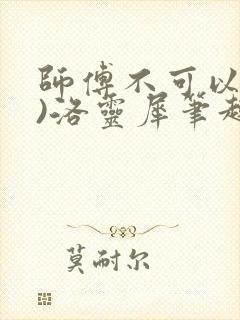 師傅不可以
)洛靈犀筆趣
莫耐尔